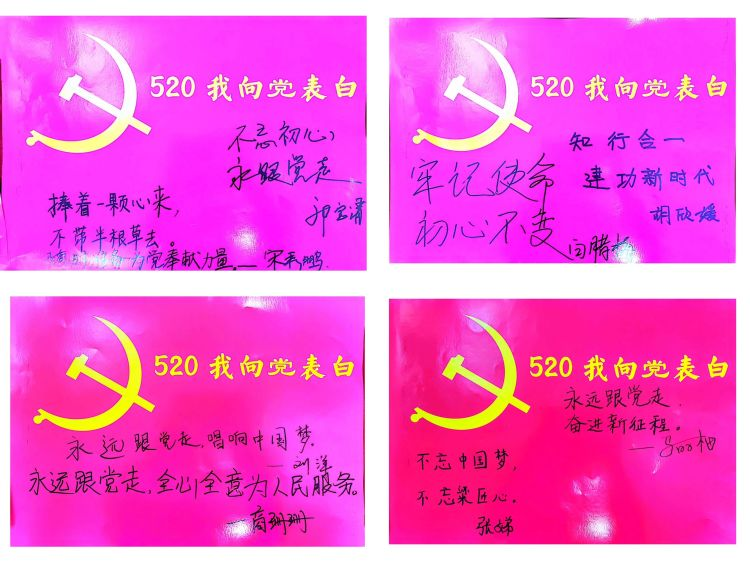 520 我向党表白
不忘初心,
永跟党走
捧着一颗心来,
不带半根草去。
随时准备为党奉献力量。— 宋秀鹏
520 我向党表白
知行合一
建功新时代
胡欣媛
牢记使命
初心不变
520 我向党表白
永远跟党走,唱响中国梦.
— 刘洋
永远跟党走,全心全意为人民服务。
— 高珊珊
520 我向党表白
永远跟党走.
奋进新征程。
不忘中国梦,
不忘梁匠心。
张娣